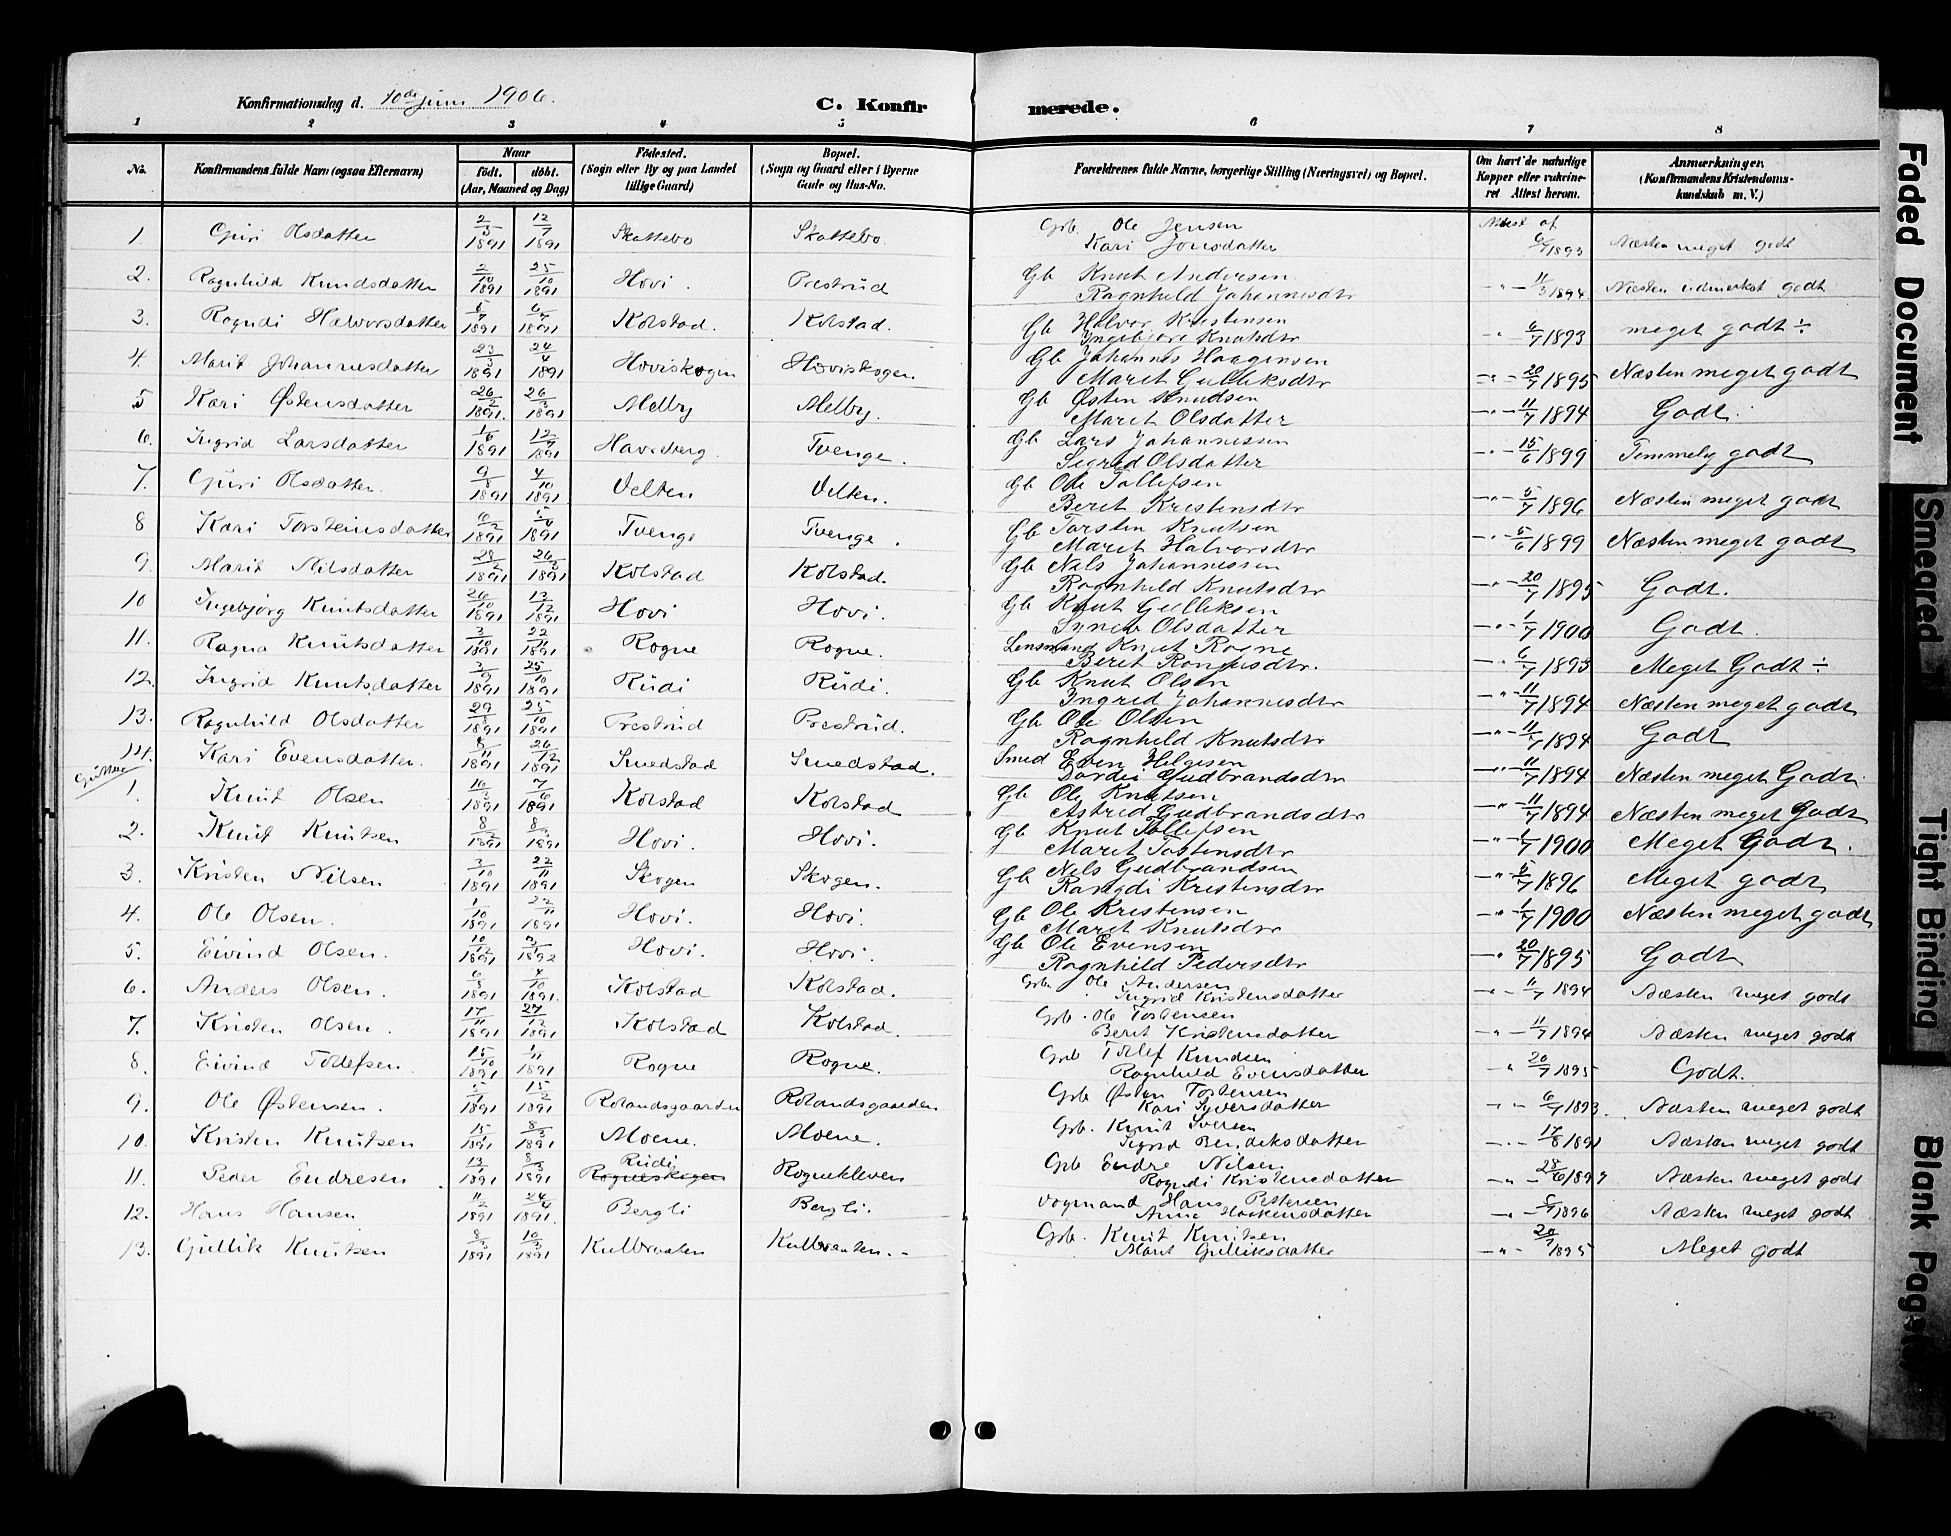 Konfirmationsdag d. 10de Juni 1906. C. Konfir merede.
1 2 3 4 5 6 7 8
No. Konfirmandens fulde Navn (ogsaa Efternavn) Naar født. døbt. (Aar, Maaned og Dag) Fødested. (Sogn eller By og paa Landet tillige Gaard) Bopæl. (Sogn og Gaard eller i Byerne Gade og Hus-No. Forældrenes fulde Navne, borgerlige Stilling (Næringsvei) og Bopæl. Om havt de naturlige Kopper eller vakcineret Attest herom. Anmærkninger. (Konfirmandens Kristendomskundskab m. V.)
1 Guri Olsdatter 2/3 1891 12/7 1891 Skattebo Skattebo. Grb. Ole Jensen Kari Jonsdatter Attest af 6/7 1893 Næsten meget godt
2. Ragnhild Knudsdatter 2/10 1891 25/10 1891 Hovi. Prestrud Gb Knut Andersen Ragnhild Johannesdtr -"- 11/3 1894 Næsten udmerket godt
3. Rogndi Halvorsdatter 1891 1891 Kolstad. Kolstad. Gb Halvor Kristensen Ingebjørg Knutsdtr -"- 6/7 1893 meget godt ÷
4. Marit Johannesdatter 23/3 1891 24/4 1891 Hoviskogen Hoviskogen Gb Johannes Haagensen Marit Gulliksdtr -"- 20/7 1895 Næsten meget godt
5 Kari Østensdatter 26/2 1891. 26/3 1891 Melby Melby. Gb Østen Knudsen Marit Olsdatter -"- 11/7 1894 Godt.
6. Ingrid Larsdatter 1/6 1891 12/7 1891 Haveberg. Tvenge. Gb Lars Johannessen Sigrid Olsdatter -"- 15/6 1899 Temmelig godt
7. Guri Olsdatter. 9/8 1891 4/10 1891 Velten Velten. Gb Ole Tollefsen Berit Kristensdtr -"- 5/7 1896 Næsten meget godt
8 Kari Torsteinsdatter 6/2 1891 5/4 1891 Tvenge Tvenge. Gb Torsten Knutsen Marit Halvorsdtr -"- 5/6 1899 Næsten meget godt
9. Marit Nilsdatter 1891 1891 Kolstad Kolstad. Gb Nils Johannessen Ragnhild Knutsdtr -"- 20/7 1895 Godt.
10 Ingebjørg Knutsdatter 26/10 1891 13/12 1891 Hovi Hovi. Gb Knut Gulliksen Synev Olsdatter -"- 1/7 1900 Godt.
11. Ragna Knutsdatter 3/10 1891 22/11 1891 Rogne Rogne. Lensmand Knut Rogne Berit Rangdisdtr. -"- 6/7 1893 Meget Godt ÷
12. Ingrid Knutsdatter 3/9 1891 25/10 1891 Rudi Rudi. Gb Knut Olsen Ingrid Johannesdtr -"- 11/7 1894 Næsten meget godt
13. Ragnhild Olsdatter 29/8 1891 25/10 1891 Prestrud Prestrud. Gb Ole Olsen Ragnhild Knutsdtr -"- 11/7 1894 Godt
14. Kari Evensdatter. 8/11 1891 26/12 1891 Smedstad Smedstad. Smed Even Helgesen Dordei Gudbrandsdtr -"- 11/7 1894 Næsten meget Godt.
Gutter
1. Knut Olsen 16/3 1891 7/6 1891 Kolstad Kolstad Gb Ole Knutsen Astrid Gudbrandsdtr -"- 11/7 1894 Næsten meget Godt
2. Knut Knutsen 1891 1891 Hovi. Hovi. Gb Knut Tollefsen Marit Tostensdtr -"- 1/7 1900 Meget Godt.
3. Kristen Nilsen 3/10 1891 22/11 1891 Skogen Skogen. Gb Nils Gudbrandsen Rangdi Kristensdtr -"- 5/7 1896 Meget godt
4. Ole Olsen. 1/10 1891 22/11 1891 Hovi. Hovi. Gb Ole Kristensen Marit Knutsdtr -"- 1/7 1900 Næsten meget godt
5. Eivind Olsen. 10/12 1891 1892 Hovi. Hovi. Gb Ole Evensen Ragnhild Pedersdtr -"- 20/7 1895 Godt
6. Anders Olsen. 6/8 1891 4/10 1891. Kolstad Kolstad. Grb. Ole Andersen Ingrid Kristensdatter -"- 11/7 1894 Næsten meget godt
7. Kristen Olsen. 17/11 1891 27/12 1891 Kolstad Kolstad. Grb. Ole Tostensen Berit Kristensdatter -"- 11/7 1894 Næsten meget godt
8. Eivind Tollefsen. 15/10 1891 1/11 1891 Rogne Rogne. Grb Tollef Knudsen Ragnhild Evensdatter " 20/7 1895 Godt.
9. Ole Østensen. 5/1 1891 15/2 1891 Rolandsgaarden Rolandsgaarden Grb Østen Tostensen Kari Syversdatter -"- 6/7 1893. Næsten meget godt
10. Kristen Knutsen 15/1 1891 8/3 1891 Moene. Moene. Grb. Knut Iversen Sigrid Bendiksdatter -"- 17/8 1891 Næsten meget godt
11. Peder Endresen 13/1 1891 8/3 1891 Rudi Rogneskogen Rognekleven Grb Endre Nilsen Rogndi Kristensdatter -"- Næsten meget godt
12. Hans Hansen 11/2 1891 24/4 1891. Bergli Bergli. Vogmand Hans Pettersen Anne Haakensdatter -"- 5/7 1896 Næsten meget godt
13. Gullik Knutsen 8/3 1891 10/5 1891 Kulbraaten Kulbraaten. Grb. Knut Knutsen Marit Gulliksdatter -"- 20/7 1895 Meget godt
Faded Document
Smeared
Tight Binding
Blank Pages